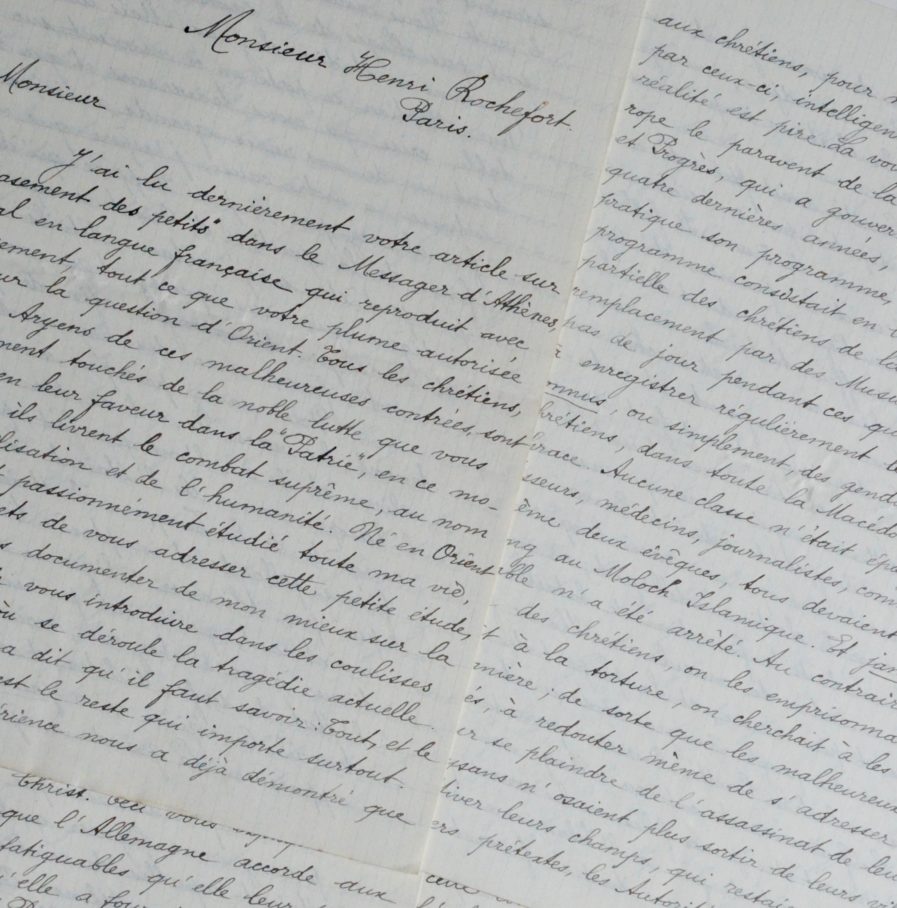 Monsieur Henri Rochefort.
Paris.
Monsieur
J'ai lu dernièrement votre article sur
asement des petits" dans le Messager d'Athènes,
al en langue française qui reproduit avec
ement, tout ce que votre plume autorisée
ur la question d'Orient. Tous les chrétiens,
Aryens de ces malheureuses contrées, sont
ment touchés de la noble lutte que vous
en leur faveur dans la "Patrie", en ce mo-
ils livrent le combat suprême, au nom
lisation et de l'humanité. Né en Orient
passionnément étudié toute ma vie,
ets de vous adresser cette petite étude,
documenter de mon mieux sur la
vous introduire dans les coulisses
où se déroule la tragédie actuelle.
a dit qu'il faut savoir: Tout, et le
est le reste qui importe surtout.
érience nous a déjà démontré que
Christ. vous
que l'Allemagne accorde aux
fatiguables qu'elle leur
'elle a four
aux chrétiens, pour
par ceux-ci, intelligen
réalité est pire. La vou
rope le paravent de la
et Progrès, qui a gouver
quatre dernières années,
pratique son programme,
programme consistait en
partielle des chrétiens de la
remplacement par des Musu
pas de jour pendant ces qu
à enregistrer régulièrement l
mmus, ou simplement, des gend
chrétiens, dans toute la Macédo
race. Aucune classe n'était épa
sseurs, médecins, journalistes, com
ême deux évêques, tous devaient
ng au Moloch Islamique. Et jam
ble n'a été arrêté. Au contrair
des chrétiens, on les emprisonna
t à la torture, on cherchait à les
anière; de sorte que les malheureux
és, à redouter même de s'adresser
r se plaindre de l'assassinat de leu
ysans n'osaient plus sortir de leurs vi
tiver leurs champs, qui restai
ers prétextes, les Autori